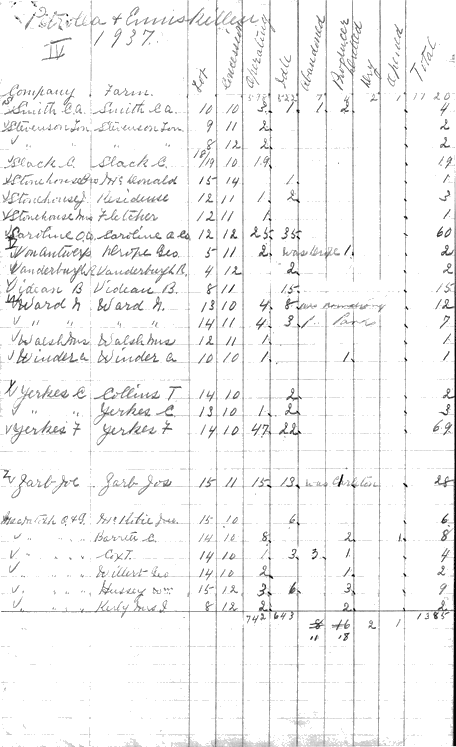 Petrolea & Enniskillen
IV 1937
Company Farm Lot Concession Operating Idle Abandoned Producer Drilled Dry Opened Total
575 522 7 2 1 11 20
Smith C.a. Smith C.a. 10 10 3 1 1 2 4
Stevenson Stevenson 9 11 2 2
" " 8 12 2 2
Slack C. Slack C. 18/19 10 19 19
Stonehouse Bro McDonald 15 14 1 1
Stonehouse J. Residense 12 11 1 2 3
Stonehouse Mrs Fletcher 12 11 1 1
Caroline O.Co Caroline O. Co 12 12 25 35 60
VanAntwerp Geo. 5 11 2 was 1 2
Vanderburgh R. Vanderburgh B. 4 12 2 2
Videan B. Videan B. 8 11 15 15
Ward N. Ward N. 13 10 4 8 was Armstrong 12
" " " " 14 11 4 3 7
Walsh Mrs Walsh Mrs 12 11 1 1
Winder a Winder a 10 10 1 1 1
Yerkes C Collins T 14 10 2 2
" " Yerkes C. 13 10 1 2 3
Yerkes F Yerkes F 14 10 47 22 69
Zarb Joe Zarb Jos 15 11 15 13 was Carleton 1 28
McRobie Jas. 15 10 6 6
" " Barrett C. 14 10 8 2 1 8
" " Cox T. 14 10 1 3 3 1 4
" " Willert Geo 14 10 2 1 2
" " Hussey Wm 15 12 3 6 3 9
" " Kerby Mrs J 8 12 2 2 2
742 643 8 16 2 1 1385
11 18